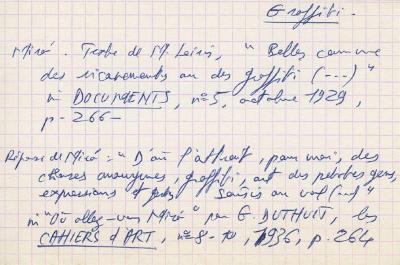 Graffiti.
Miró. Texte de M. Leiris, "Belles comme
des ricanements ou des graffiti (---)"
in DOCUMENTS, n°5, octobre 1929,
p-266-
Réponse de Miró: "D'où l'attrait, pour moi, des
choses anonymes, graffiti, art des petites gens,
expressions et saisis au vol (...)"
in "Où allez-vous Miró" par G. DUTHUIT, les
CAHIERS d'ART, n°8-10, 1936, p. 264